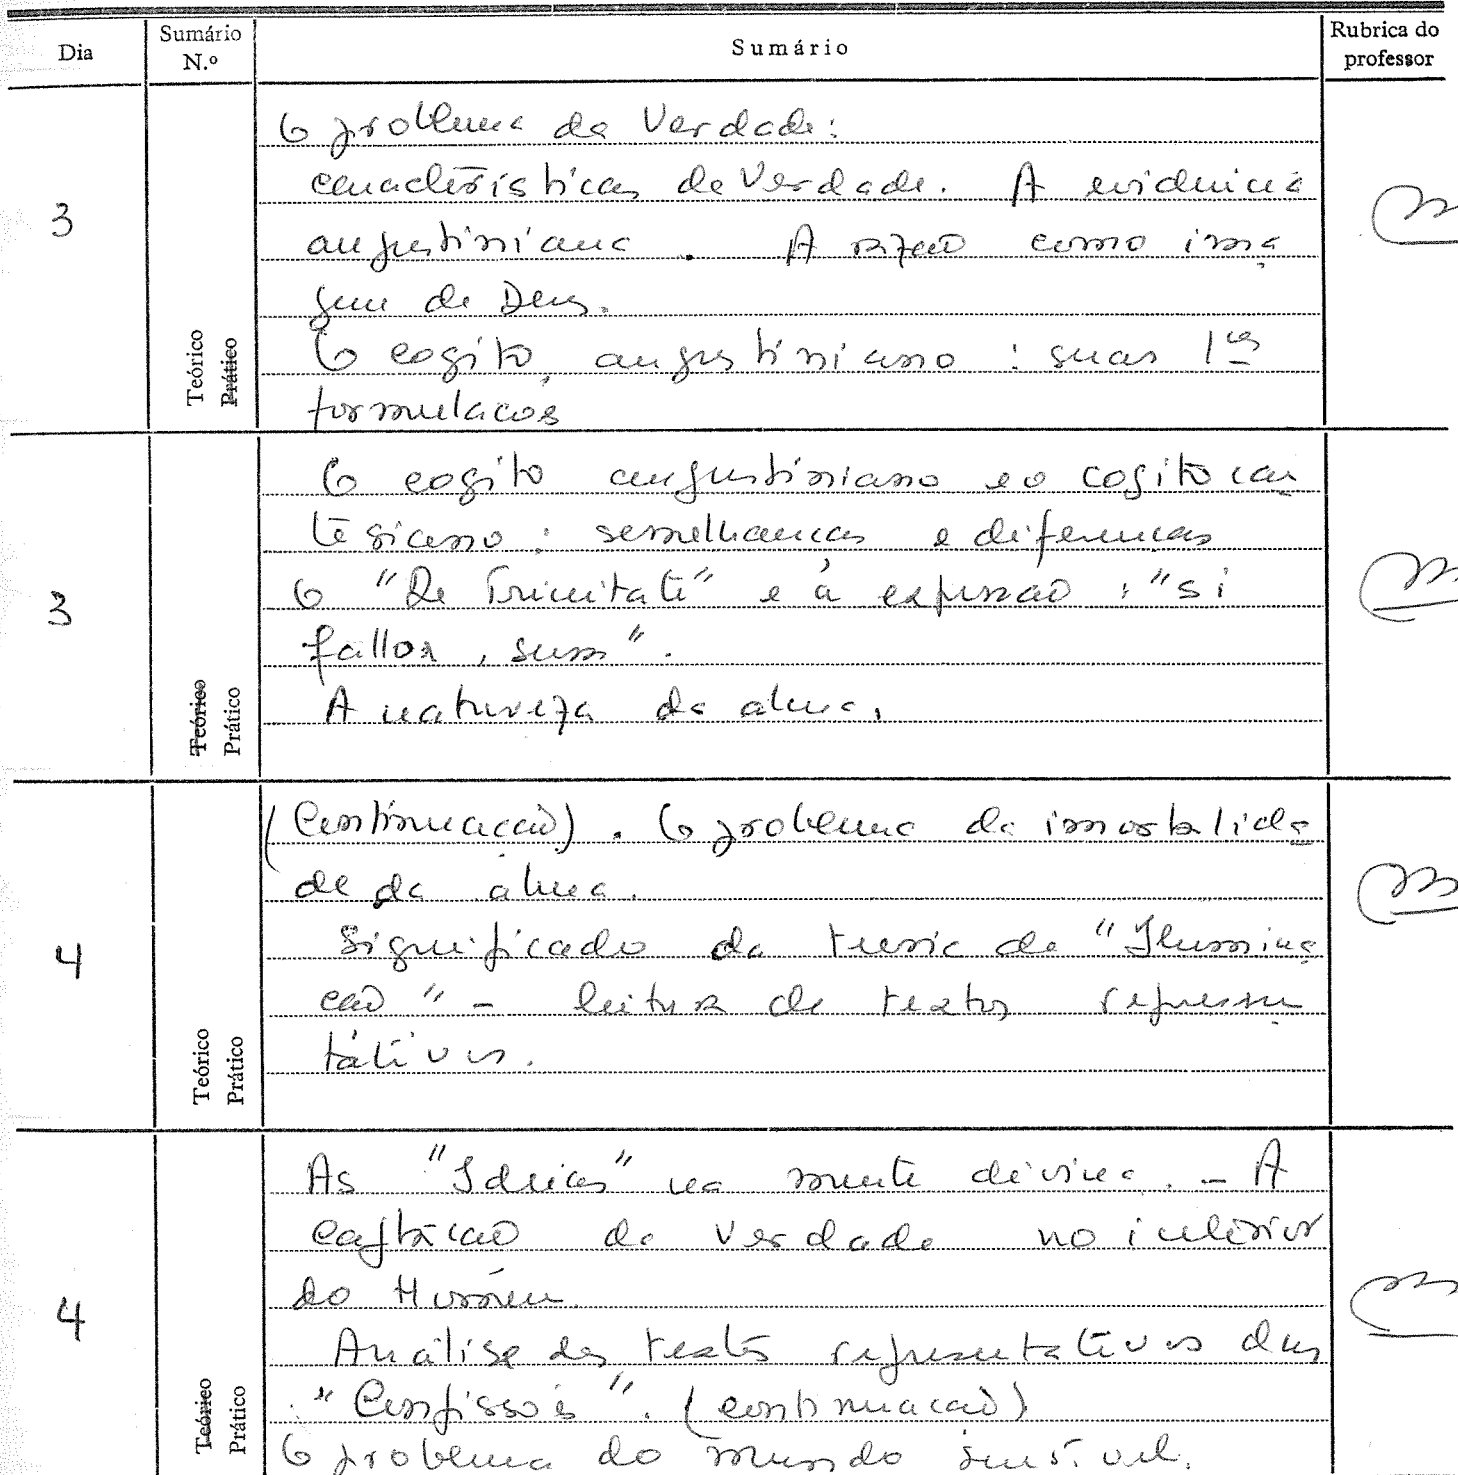 Dia
Sumário
N.º
Sumário
Rubrica do
professor
3
Teórico
Prático
O problema da Verdade:
características da Verdade. A evidência
augustiniana. A razão como ima
gem de Deus.
O cogito augustiniano: suas 1as
formulações
3
Teórico
Prático
O cogito augustiniano e o cogito car
tesiano: semelhanças e diferenças
O "De Trinitate" e a expressão: "si
fallor, sum".
A natureza da alma.
4
Teórico
Prático
(Continuação). O problema da imortalida
de da alma.
Significado da teoria da "Ilumina
ção" - leitura de textos represen
tativos.
4
Teórico
Prático
As "Ideias" na mente divina. - A
captação da Verdade no interior
do Homem.
Análise dos textos representativos das
"Confissões". (continuação)
O problema do mundo sensível.